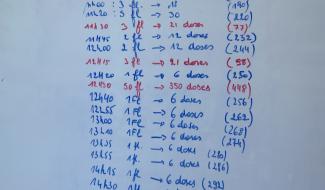 11h00 : 3 fl. → 18 (190)
11h20 : 5 fl → 30 (220)
11h30 3 fl → 21 doses (77)
11h45 2 fl → 12 doses (232)
12h00 2 fl → 12 doses (244)
12h15 3 fl → 21 doses (98)
12h20 1 fl → 6 doses (250)
12h30 50 fl → 350 doses (448)
12h40 1Fl → 6 doses (256)
12h55 1Fl → 6 doses (262)
13h00 1Fl → 6 doses (268)
13h10 1Fl → 6 doses (274)
13h35 1fl → 6 doses (280)
13h55 1fl → 6 doses (286)
14h15 1fl → 6 doses (292)
14h30 1fl